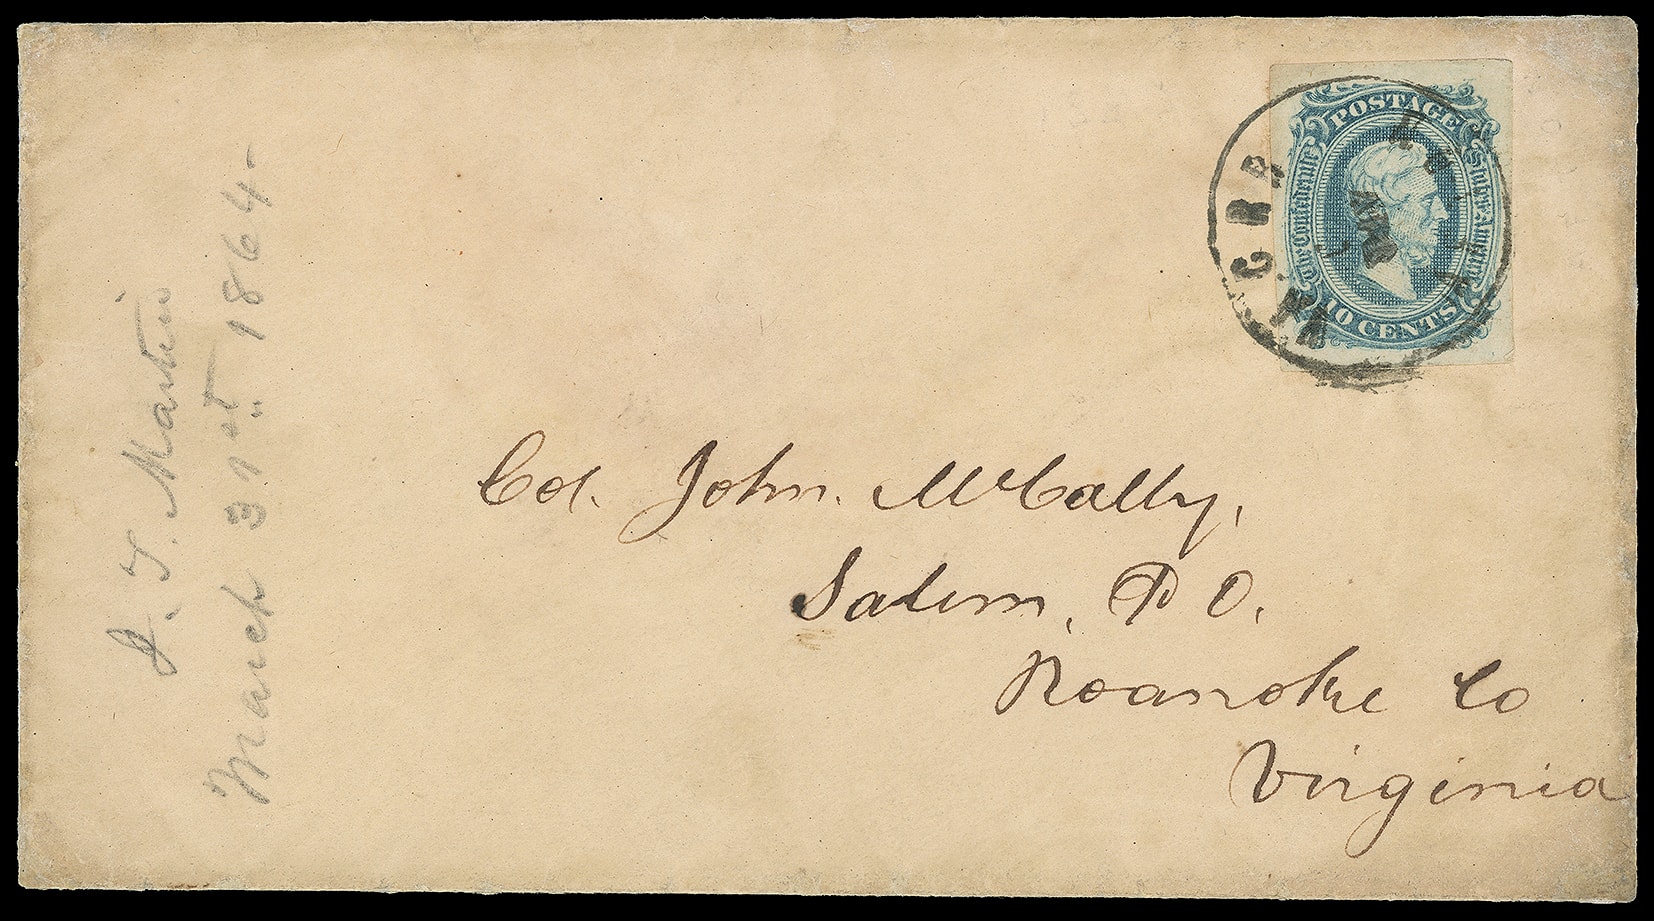 POSTAGE
The Confederate States of America
10 CENTS
APR
VA.
J. T. Martin
March 31st 1864-
Col. John. McCally,
Salem, P O,
Roanoke Co
Virginia